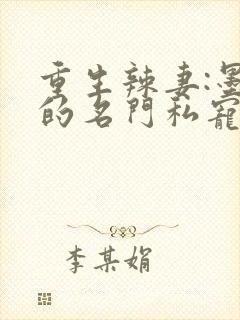 重生辣妻:墨
的名門私寵
李某娟